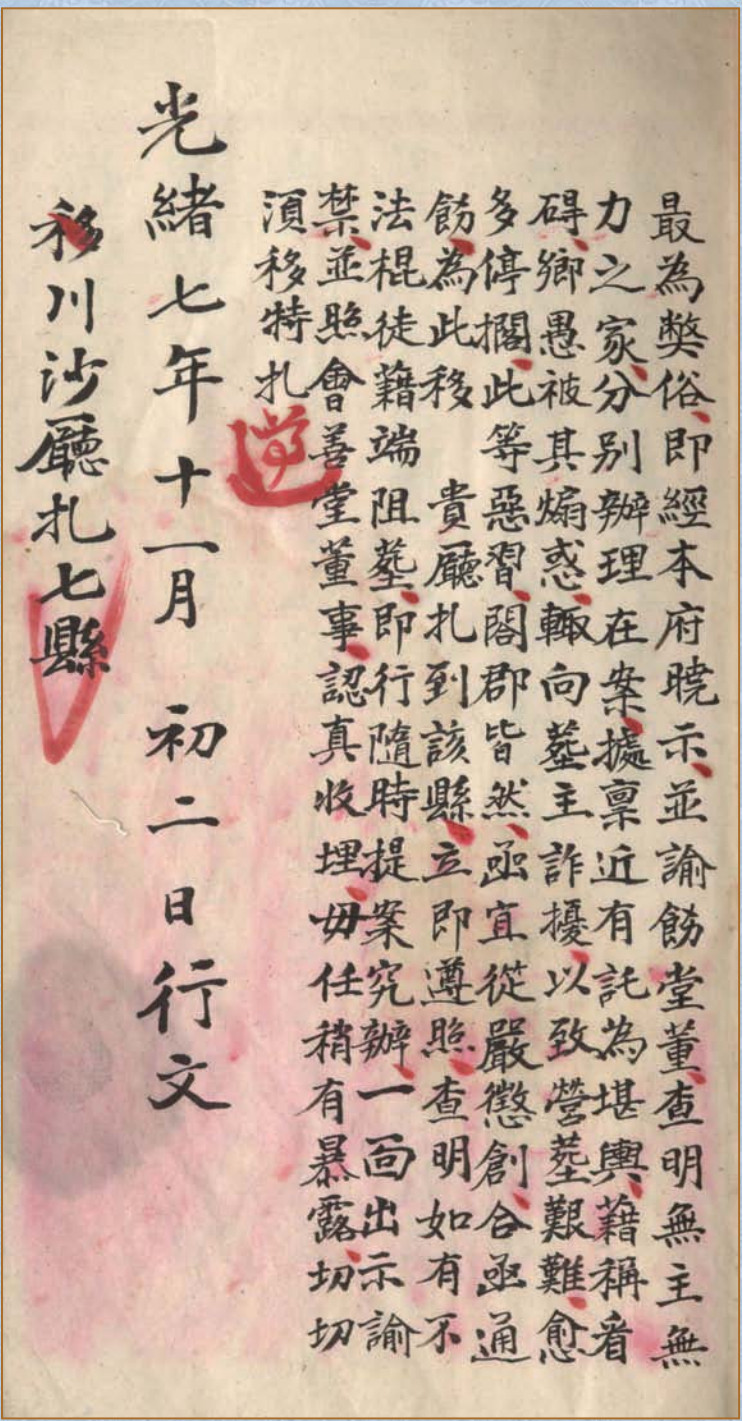 最為獘俗即經本府曉示並諭飭堂董查明無主無
力之家分别辦理在案據禀近有託為堪輿藉稱看
碍鄉愚被其煽惑輙向塟主詐擾以致營塟艱難愈
多停擱此等惡習閤郡皆然亟宜從嚴懲創合亟通
飭為此移 貴廳扎到該縣立即遵照查明如有不
法棍徒藉端阻塟即行隨時提案究辦一面出示諭
禁並照會善堂董事認真收埋毋任稍有暴露切切
湏移特扎
遵
光緒七年十一月 初二日行文
移川沙廳扎七縣